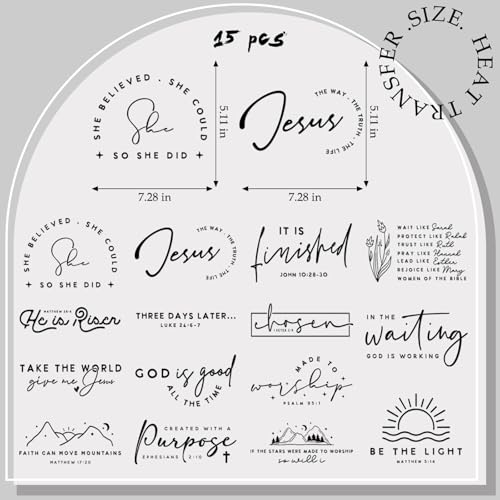 15 pcs
SIZE. HEAT TRANSFER.
SHE BELIEVED · SHE COULD
She
SO SHE DID
5.11 in
7.28 in
Jesus
THE WAY · THE TRUTH · THE LIFE
5.11 in
7.28 in
SHE BELIEVED · SHE COULD
She
SO SHE DID
Jesus
THE WAY · THE TRUTH · THE LIFE
IT IS
finished
JOHN 10:28-30
WAIT LIKE Sarah
PROTECT LIKE Rahab
TRUST LIKE Ruth
PRAY LIKE Hannah
LEAD LIKE Esther
REJOICE LIKE Mary
WOMEN OF THE BIBLE
He is Risen
THREE DAYS LATER...
LUKE 24:6-7
chosen
IN THE
waiting
GOD IS WORKING
TAKE THE WORLD
give me Jesus
GOD is good
ALL THE TIME
MADE TO
worship
PSALM 95:1
BE THE LIGHT
MATTHEW 5:14
FAITH CAN MOVE MOUNTAINS
MATTHEW 17:20
CREATED WITH A
Purpose
EPHESIANS 2:10
IF THE STARS WERE MADE TO WORSHIP
so will i